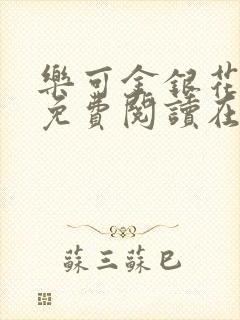 樂可金銀花
免費閱讀在
蘇三蘇巳